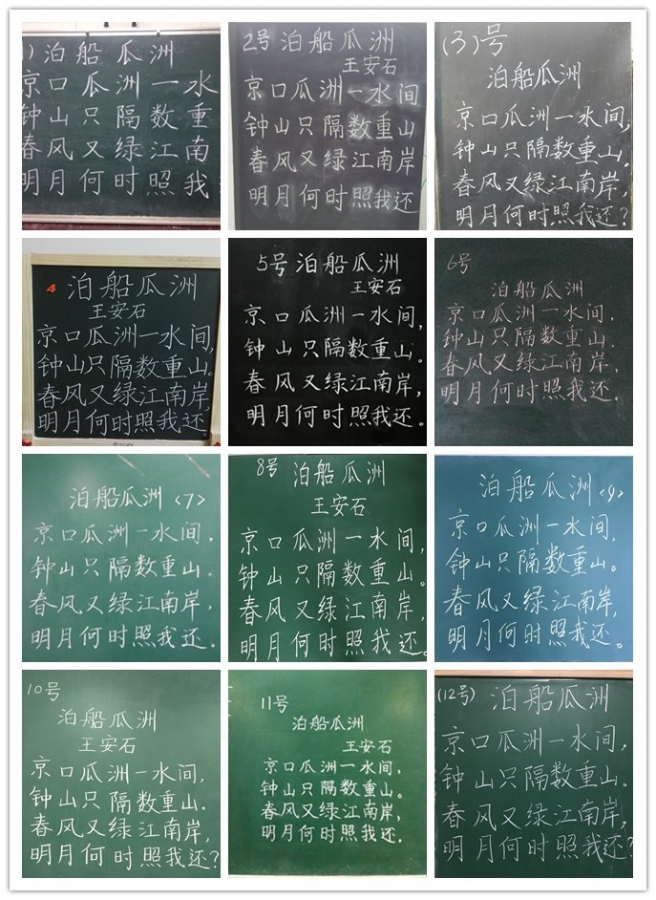 1) 泊船瓜洲
京口瓜洲一水
钟山只隔数重
春风又绿江南
明月何时照我
2号 泊船瓜洲
王安石
京口瓜洲一水间
钟山只隔数重山
春风又绿江南岸
明月何时照我还
(3)号
泊船瓜洲
京口瓜洲一水间,
钟山只隔数重山。
春风又绿江南岸,
明月何时照我还?
4 泊船瓜洲
王安石
京口瓜洲一水间,
钟山只隔数重山。
春风又绿江南岸,
明月何时照我还。
5号 泊船瓜洲
王安石
京口瓜洲一水间,
钟山只隔数重山。
春风又绿江南岸,
明月何时照我还。
6号
泊船瓜洲
京口瓜洲一水间.
钟山只隔数重山.
春风又绿江南岸,
明月何时照我还.
泊船瓜洲 <7>
京口瓜洲一水间,
钟山只隔数重山.
春风又绿江南岸,
明月何时照我还.
8号 泊船瓜洲
王安石
京口瓜洲一水间,
钟山只隔数重山。
春风又绿江南岸,
明月何时照我还.
泊船瓜洲 <9>
京口瓜洲一水间,
钟山只隔数重山。
春风又绿江南岸,
明月何时照我还。
10号
泊船瓜洲
王安石
京口瓜洲一水间,
钟山只隔数重山.
春风又绿江南岸,
明月何时照我还?
11号
泊船瓜洲
王安石
京口瓜洲一水间,
钟山只隔数重山。
春风又绿江南岸,
明月何时照我还.
(12号) 泊船瓜洲
京口瓜洲一水间,
钟山只隔数重山.
春风又绿江南岸,
明月何时照我还?